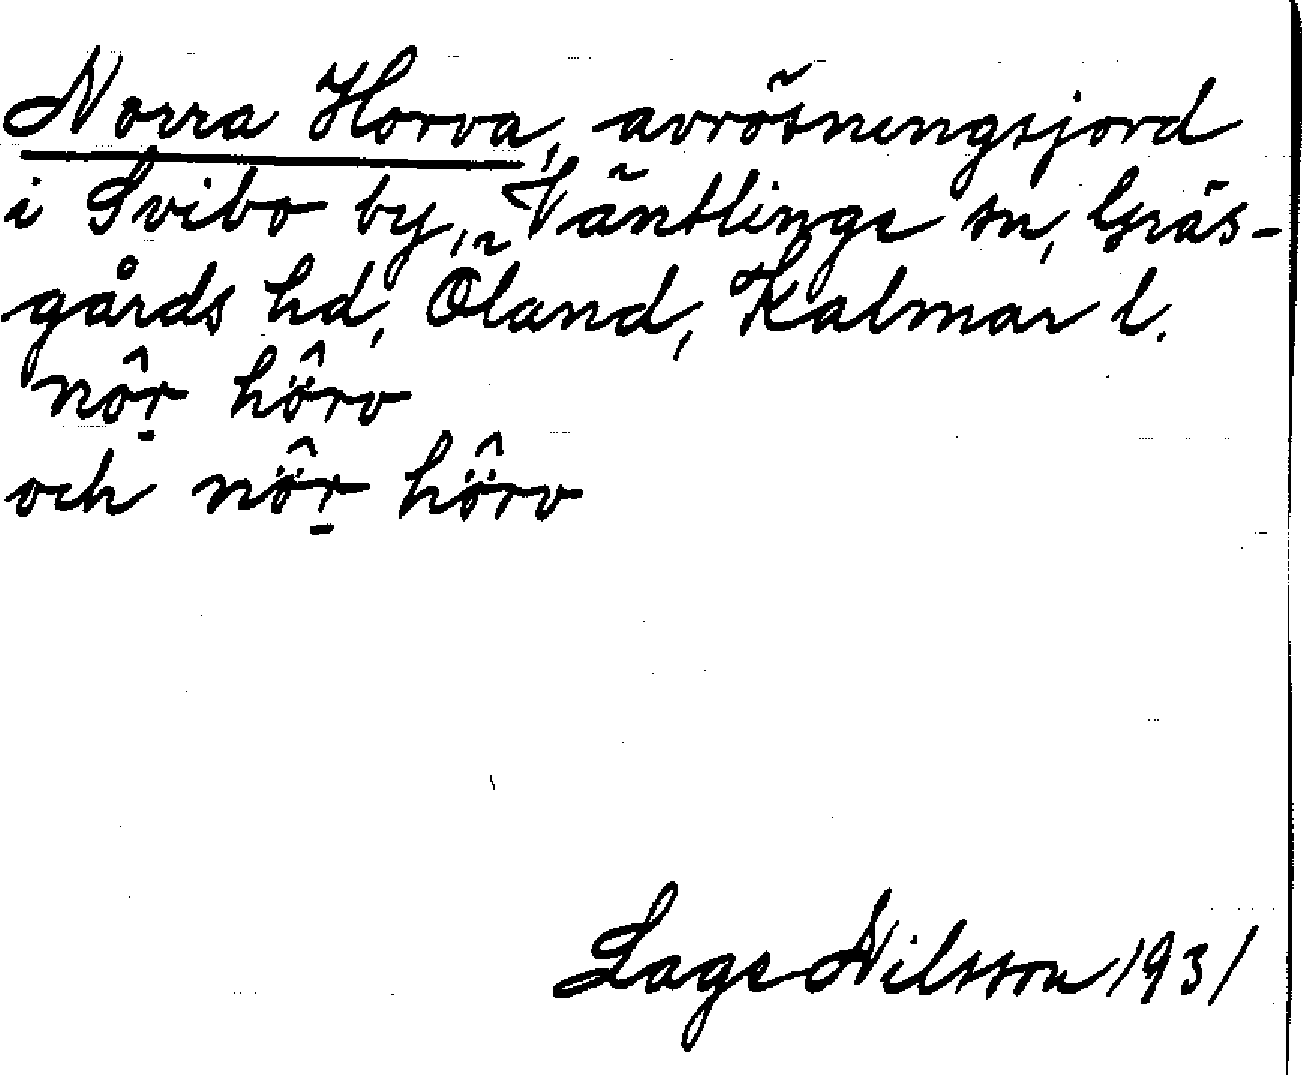 Norra Horva, avrösningsjord
i Svibo by, Ventlinge sn, Gräs-
gårds hd, Öland, Kalmar l.
nôr hö̂rv
och nö̂r hö̂rv
Lage Nilsson 1931